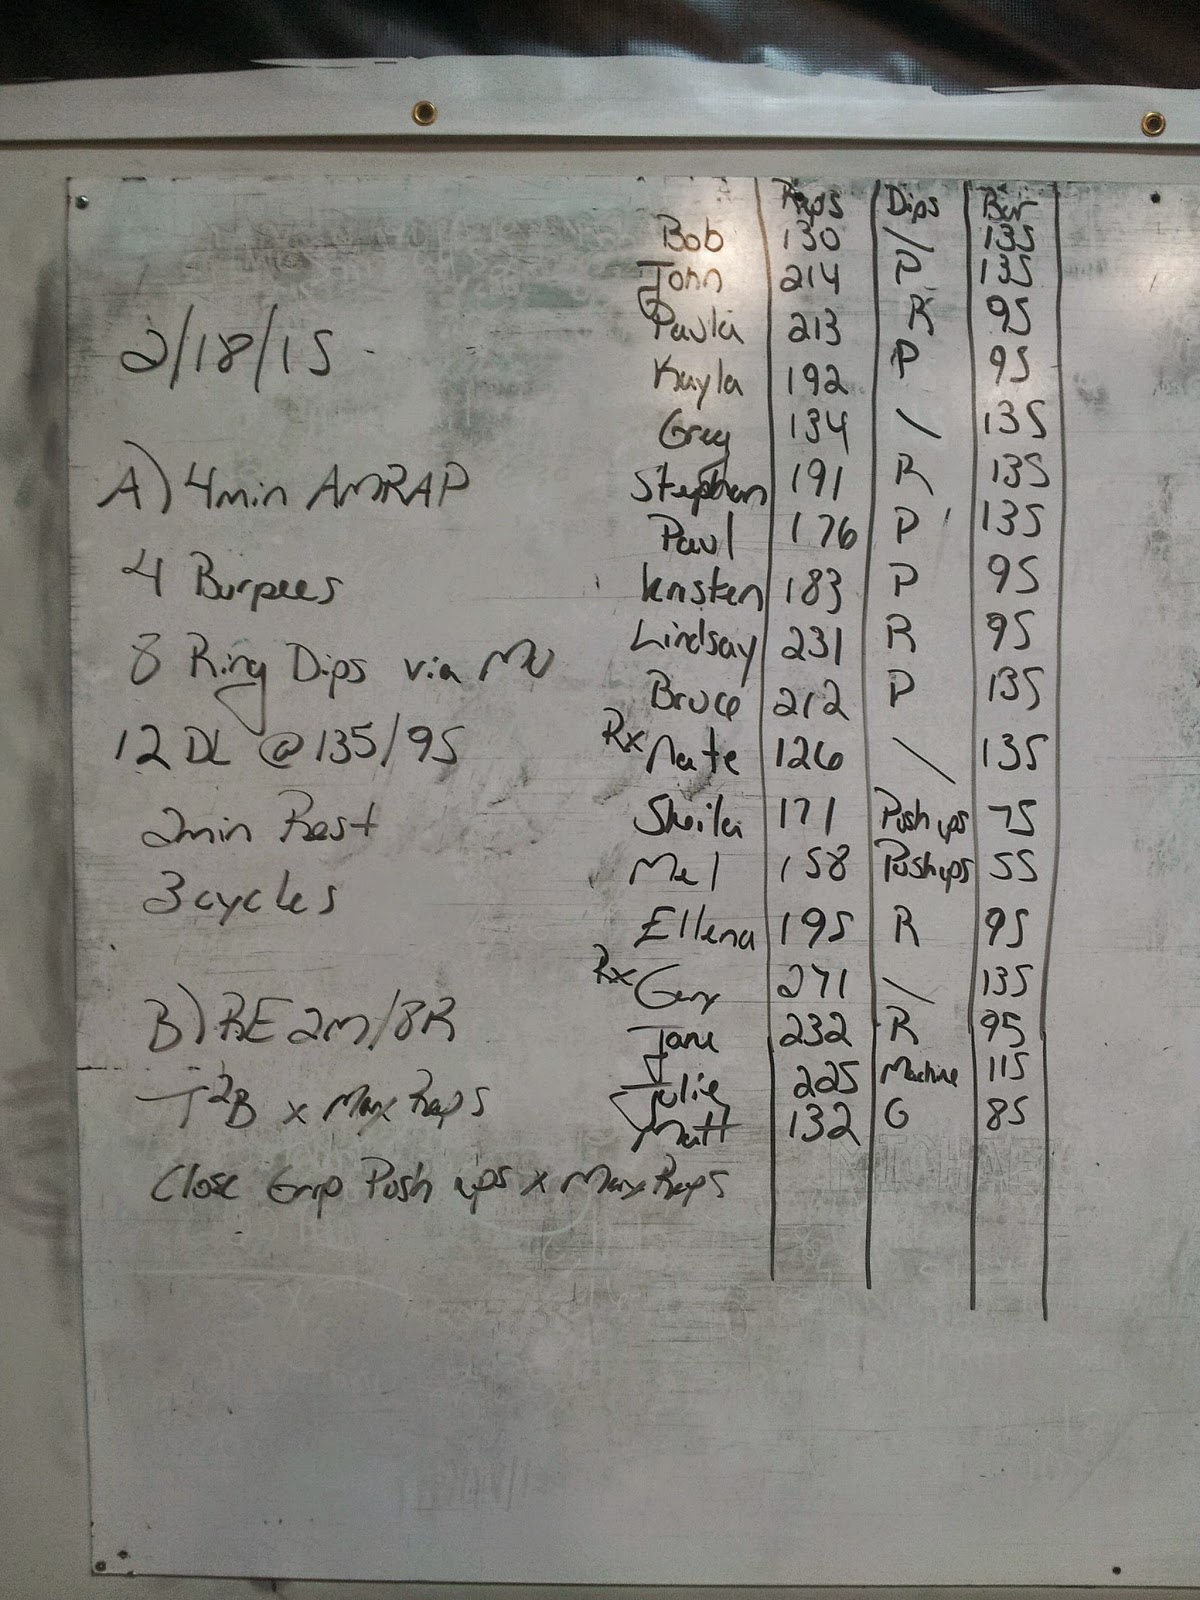 2/18/15
A) 4min AMRAP
4 Burpees
8 Ring Dips via MU
12 DL @ 135/95
2min Rest
3 cycles
B) RE 2m/8R
T2B x Max Reps
Close Grip Push ups x Max Reps
Reps Dips Bar
Bob 130 / 135
John 214 P 135
Paula 213 R 95
Kayla 192 P 95
Greg 134 \ 135
Stephan 191 R 135
Paul 176 P 135
Kristen 183 P 95
Lindsay 231 R 95
Bruce 212 P 135
Rx Nate 126 \ 135
Sheila 171 Push ups 75
Mel 158 Pushups 55
Ellena 195 R 95
Rx 271 \ 135
Jane 232 R 95
Julie 225 Machine 115
Matt 132 G 85